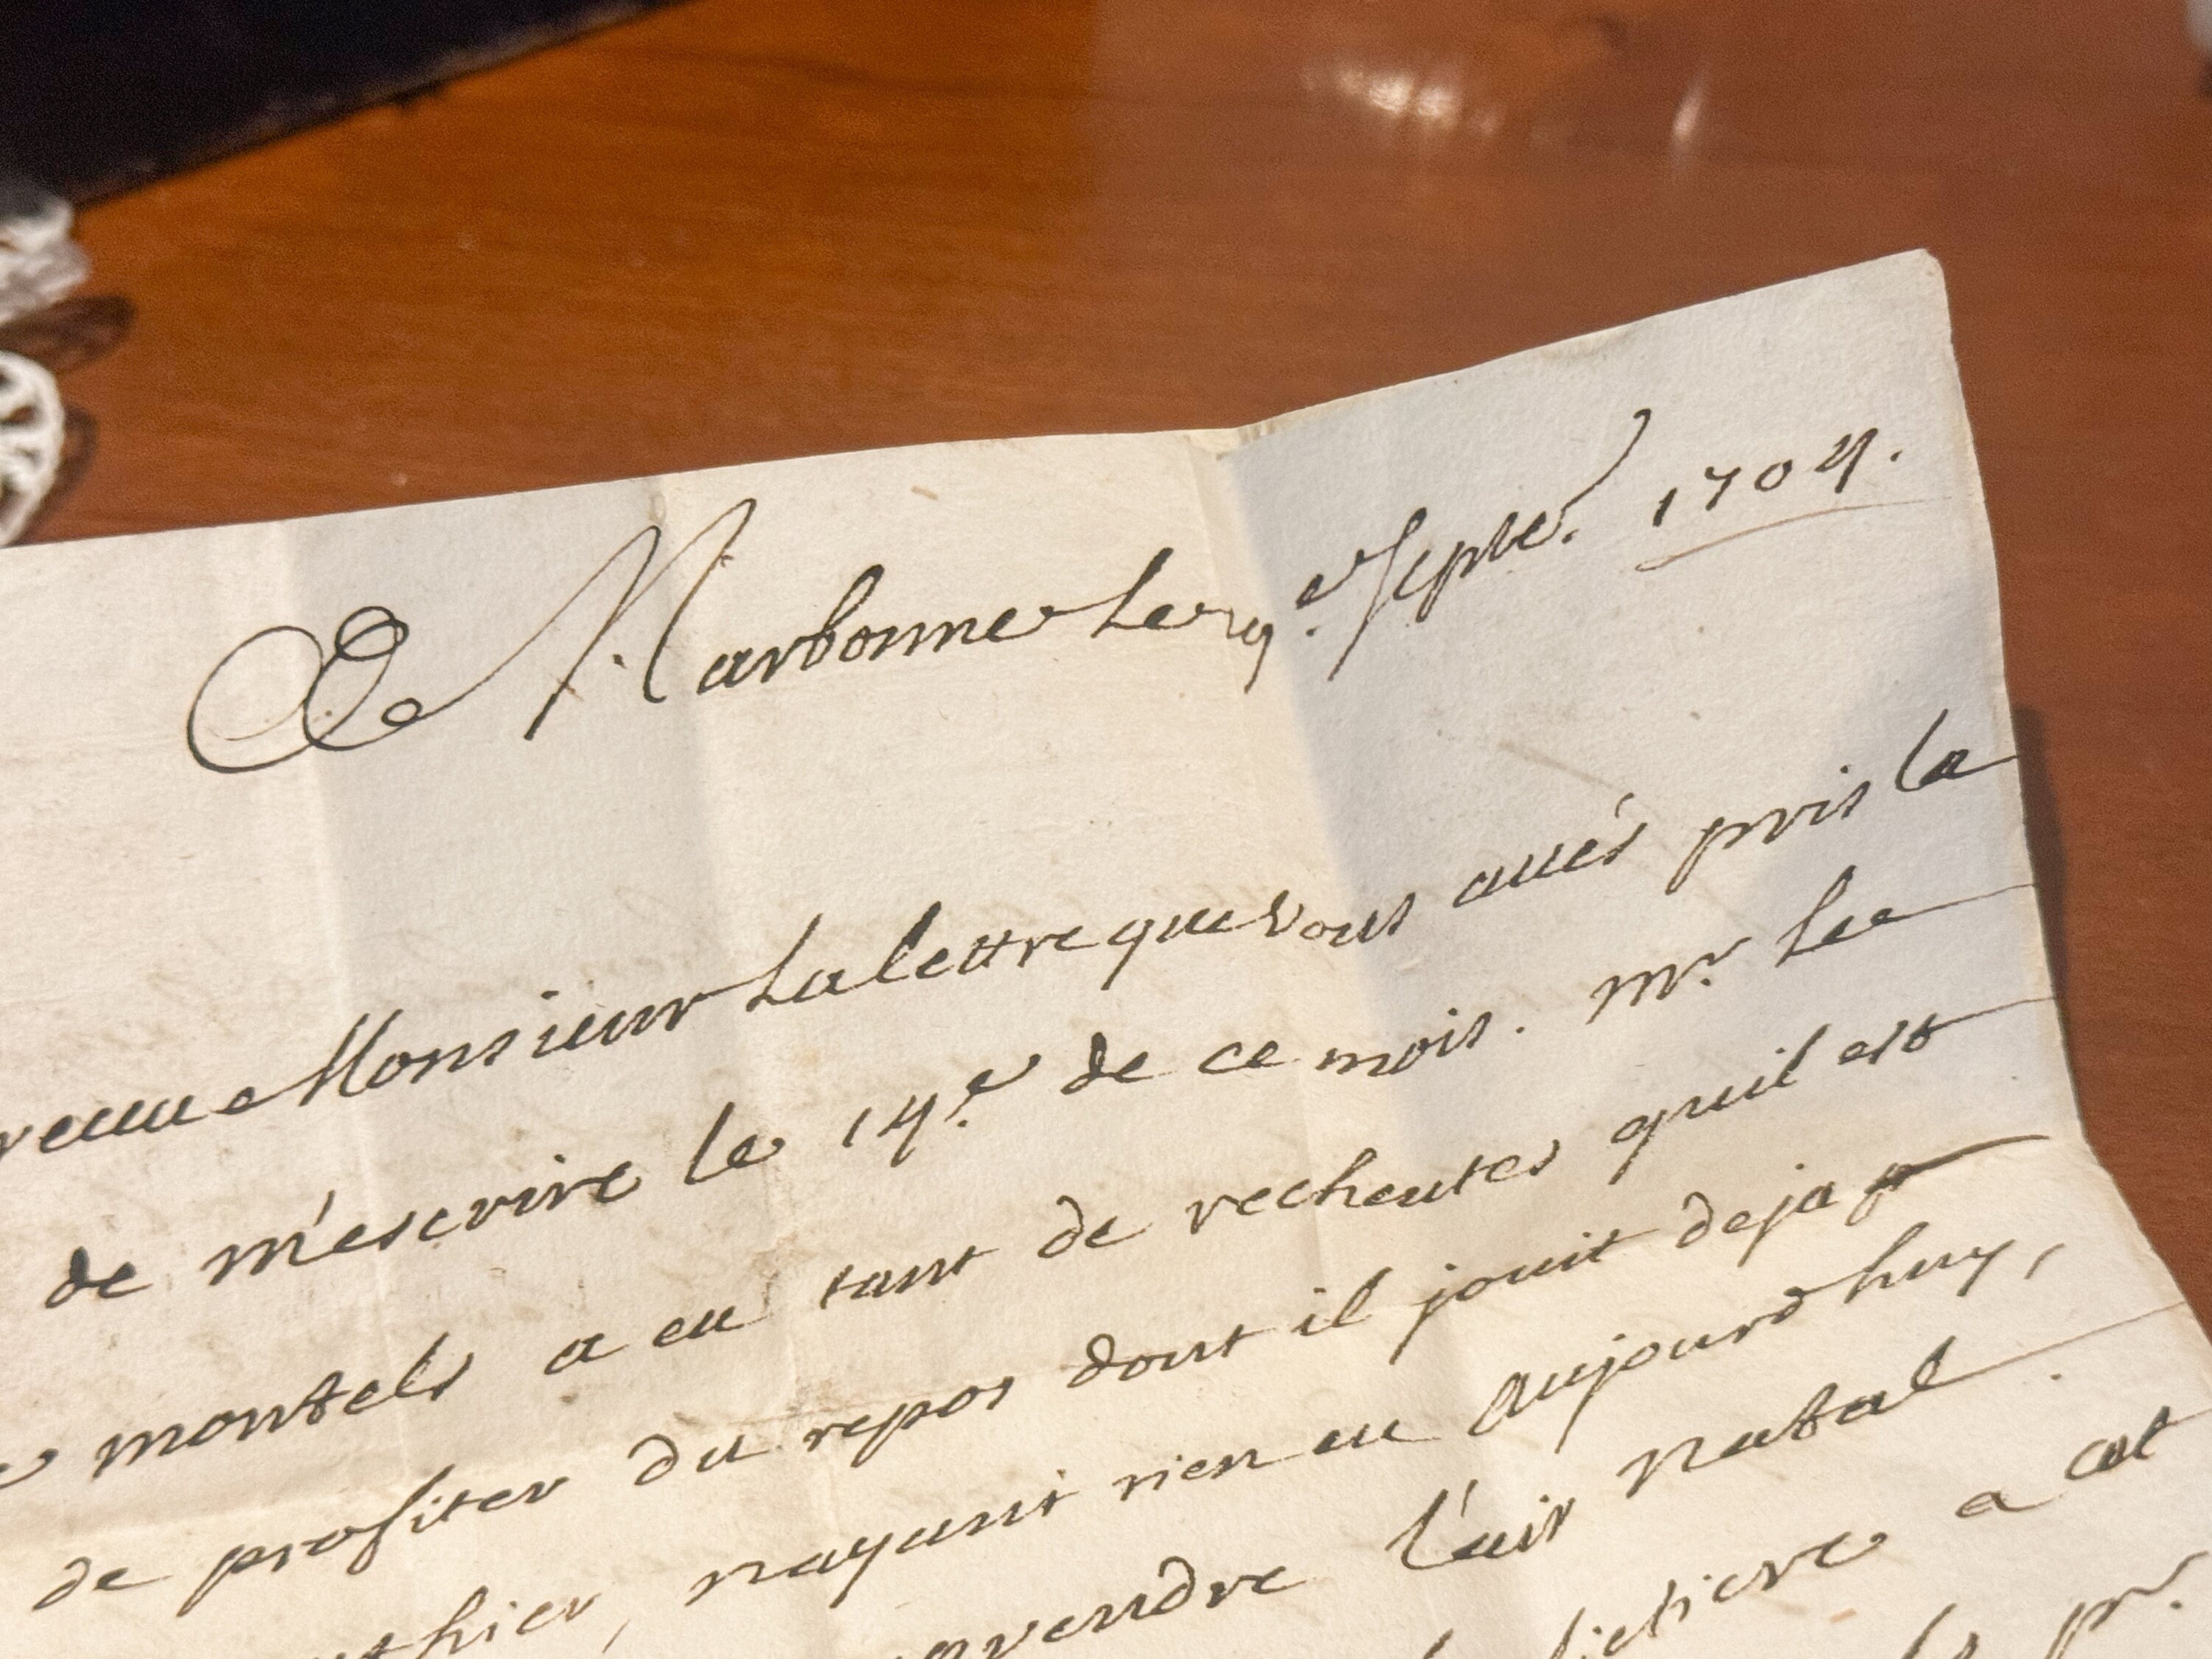 De Narbonne le 19.e Septe. 1704.
receu Monsieur La lettre que Vous aués pris la
de m'escrire le 14.e de ce mois. Mr. Le
montels a eu tant de recheutes quil est
de profiter du repos dont il jouit deja
nayant rien eu aujourdhuy,
l'air natal.
a cet
pr.